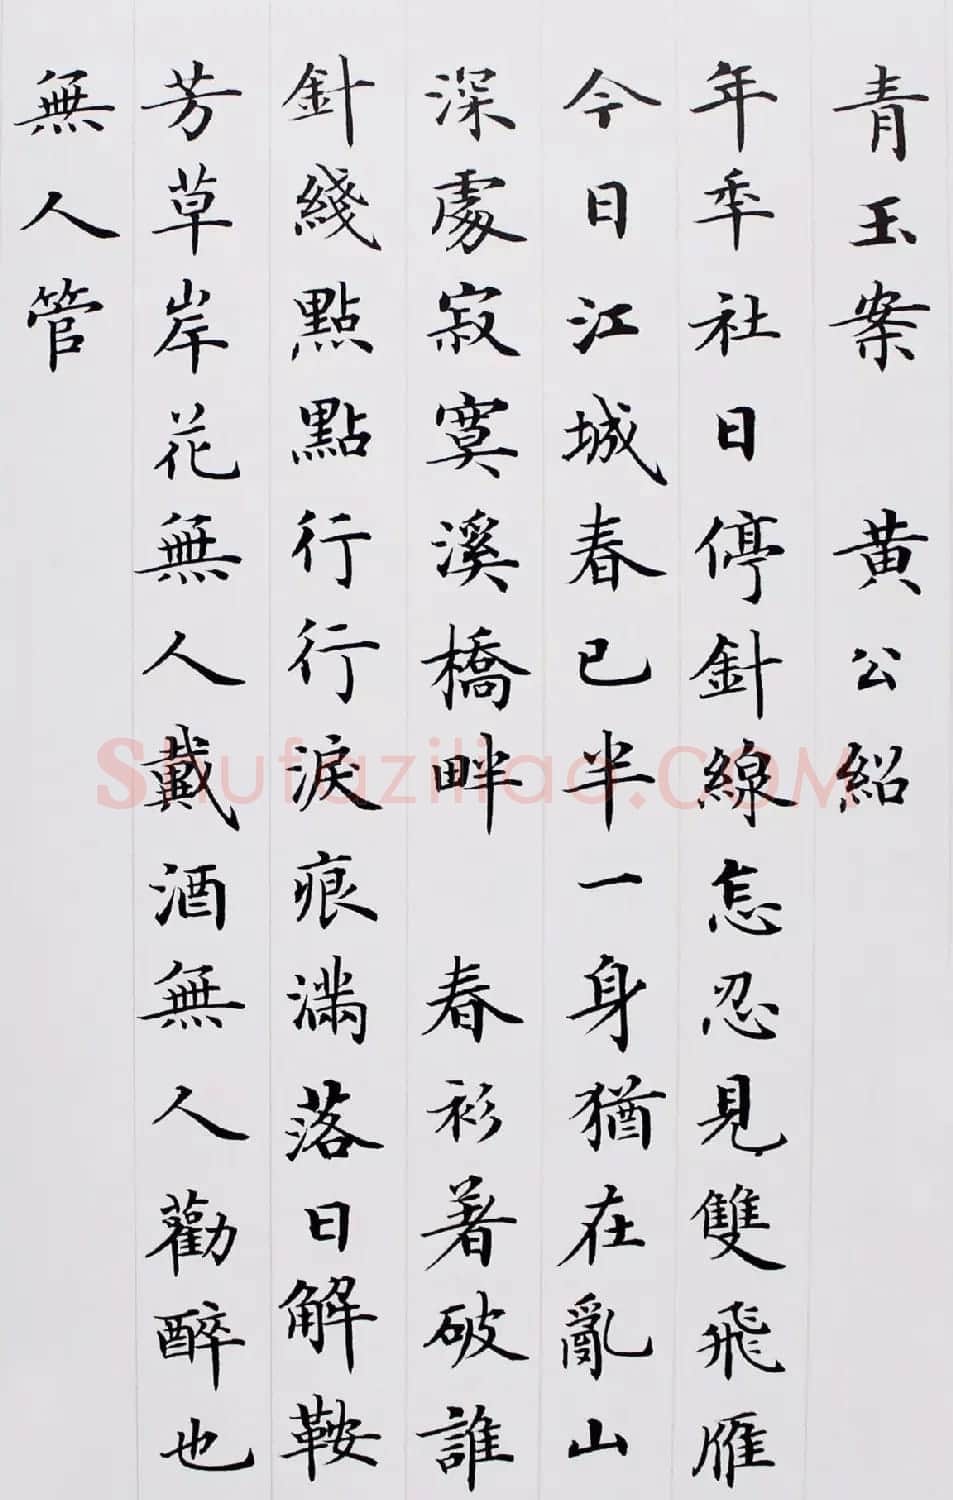 青玉案 黄公紹
年年社日停針線怎忍見雙飛雁
今日江城春已半一身猶在亂山
深處寂寞溪橋畔 春衫著破誰
針綫點點行行淚痕滿落日解鞍
芳草岸花無人戴酒無人勸醉也
無人管
Shufaziliao.COM